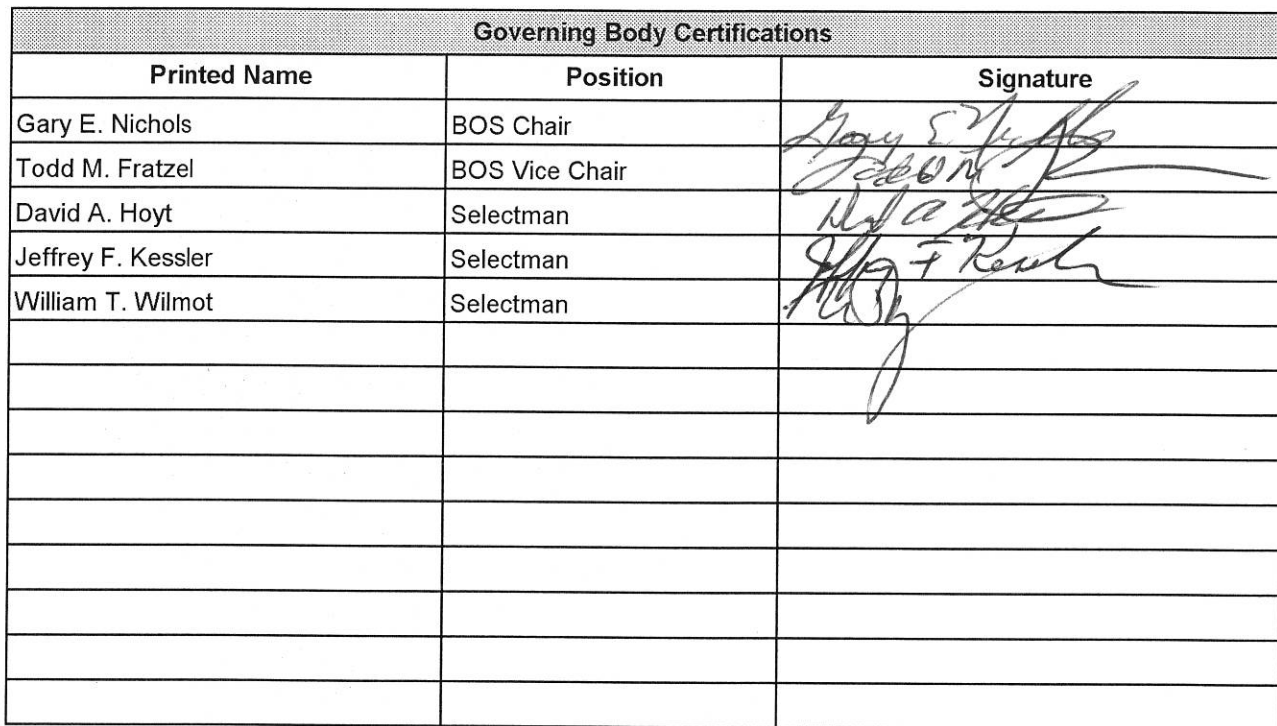 Governing Body Certifications
Printed Name Position Signature
Gary E. Nichols BOS Chair Gary E Nichols
Todd M. Fratzel BOS Vice Chair
David A. Hoyt Selectman
Jeffrey F. Kessler Selectman Jeffrey F Kessler
William T. Wilmot Selectman